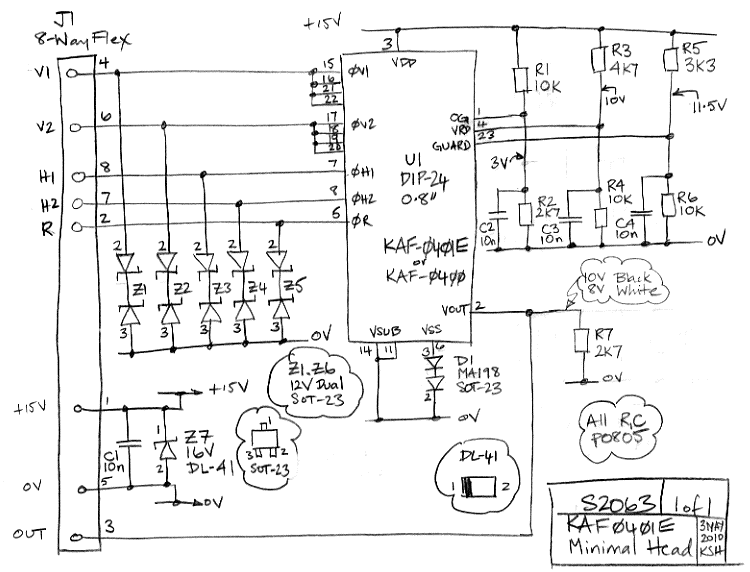 J1
8-Way Flex
+15V
V1
4
15
ØV1
16
21
22
3
VDD
R1
10K
R3
4K7
10V
R5
3K3
11.5V
V2
6
17
ØV2
18
19
20
OG
1
VRD
4
GUARD
23
H1
8
7
ØH1
H2
7
8
ØH2
R
2
6
ØR
U1
DIP-24
0.8"
KAF-0401E
or
KAF-0400
3V
C2
10n
R2
2K7
C3
10n
R4
10K
C4
10n
R6
10K
0V
2 2 2 2 2
Z1 Z2 Z3 Z4 Z5
3 3 3 3 3
0V
VOUT
2
10V Black
8V White
R7
2K7
0V
VSUB
VSS
14
11
6
3
D1
MA198
SOT-23
2
0V
Z1..Z6
12V Dual
SOT-23
+15V
1
+15V
C1
10n
1
Z7
16V
DL-41
2
1
3
2
SOT-23
0V
5
0V
DL-41
1
2
All R,C
P0805
OUT
3
S2063
1 of 1
KAF0401E
Minimal Head
3MAY
2010
KSH